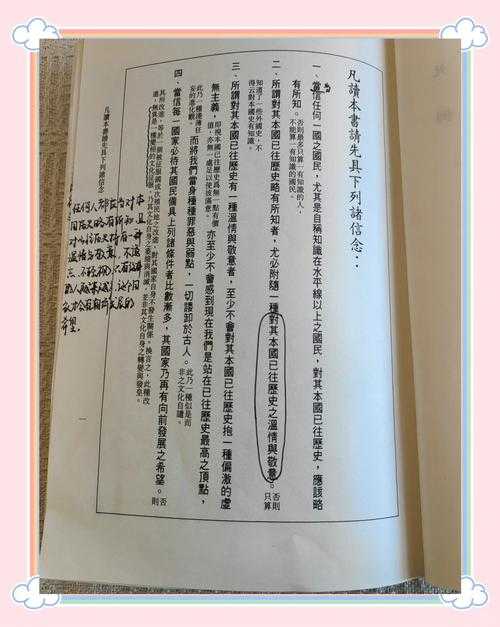 凡讀本書請先具下列諸信念：
一、當信任何一國之國民，尤其是自稱知識在水平線以上之國民，對其本國已往歷史，應該略
有所知。否則最多只算一有知識的人，
不能算一有知識的國民。
二、所謂對其本國已往歷史略有所知者，尤必附隨一種對其本國已往歷史之溫情與敬意。否則
只算
知道了一些外國史，不
得云對本國史有知識。
三、所謂對其本國已往歷史有一種溫情與敬意者，至少不會對其本國已往歷史抱一種偏激的虛
無主義，即視本國已往歷史為無一點有價
值，亦無一處足以使彼滿意。亦至少不會感到現在我們是站在已往歷史最高之頂點，
此乃一種淺薄狂
妄的進化觀。而將我們當身種種罪惡與弱點，一切諉卸於古人。此乃一種似是而
非之文化自譴。
四、當信每一國家必待其國民備具上列諸條件者比數漸多，其國家乃再有向前發展之希望。否
則
其所改進，等於一個被征服國或次殖民地之改進，對其國家自身不發生關係。換言之，此種改
進，無異是一種變相的文化征服，乃其文化自身之萎縮與消滅，並非其文化自身之轉變與發皇。
凡讀本書請先具下列諸信念
一